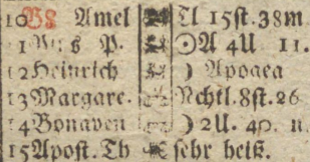 10 Amel Tl 15st. 38m
11 P. ☉A 4U 11.
12 Heinrich ) Apogea
13 Margare. Nchtl. 8st. 26
14 Bonaven ) 2U. 40. n
15 Apost. Th sehr heiß.